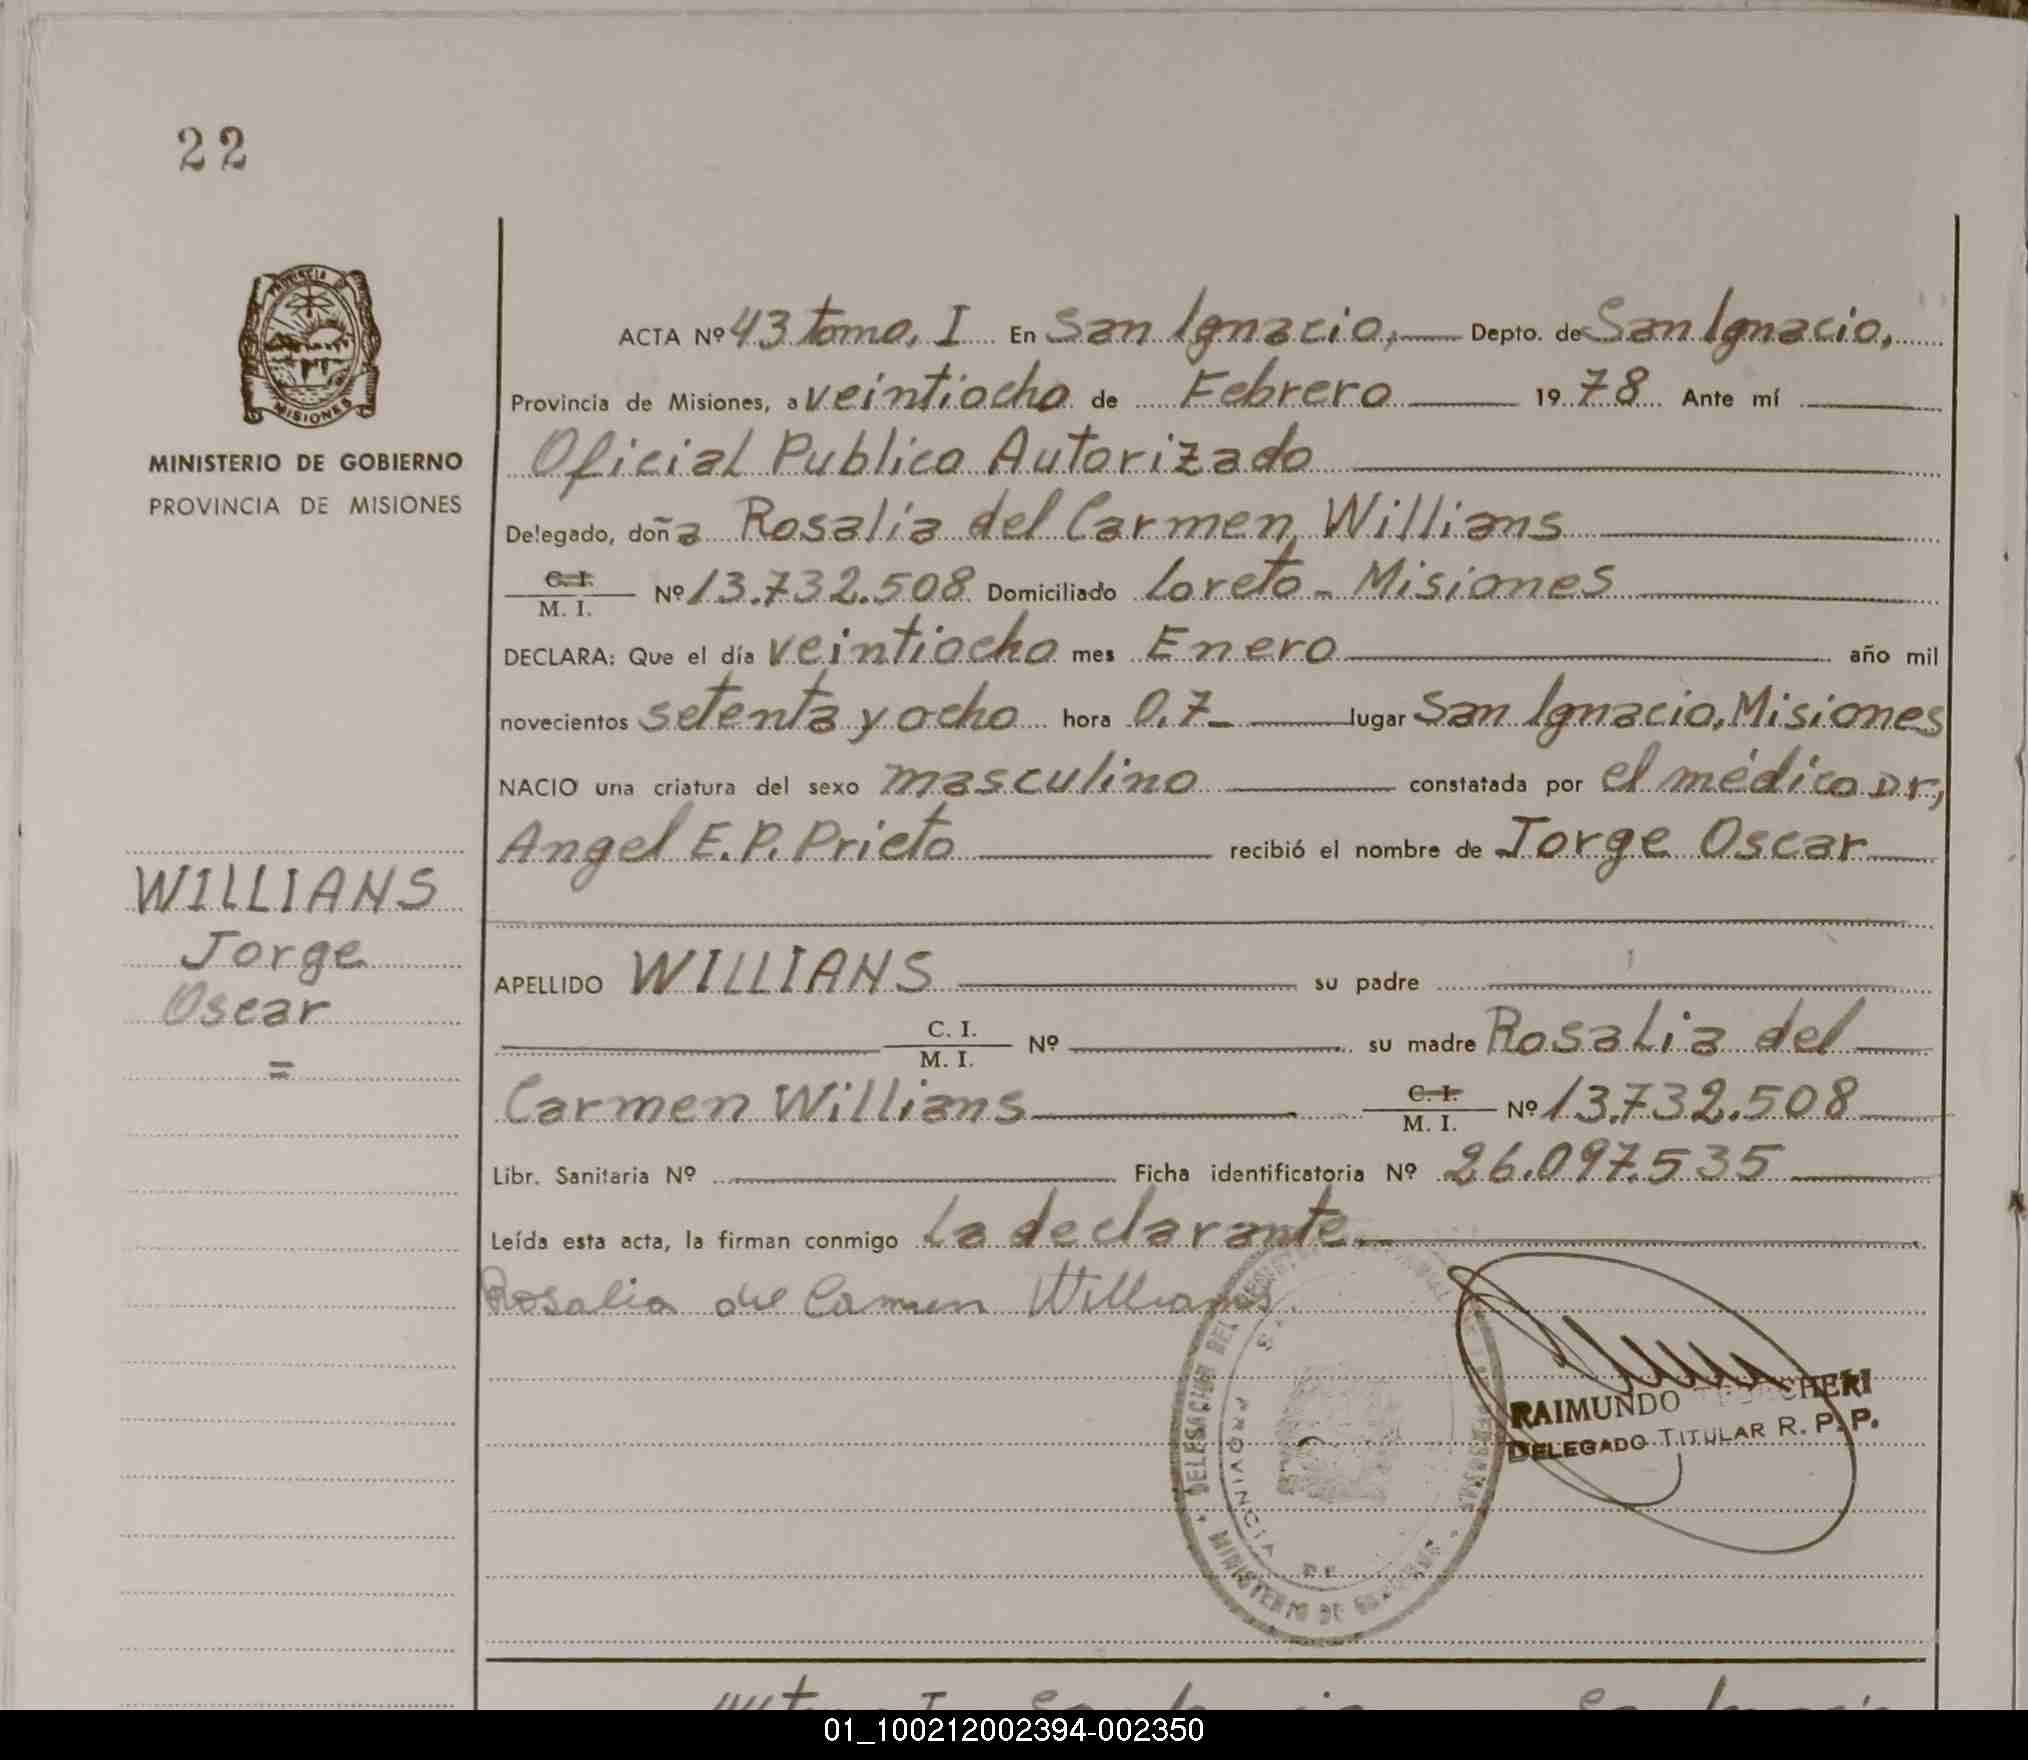 22
PROVINCIA
MISIONES
MINISTERIO DE GOBIERNO
PROVINCIA DE MISIONES
ACTA Nº 43 tomo, I En San Ignacio, Depto. de San Ignacio,
Provincia de Misiones, a veintiocho de Febrero 1978 Ante mí
Oficial Publico Autorizado
Delegado, doña Rosalía del Carmen Willians
C. I.
M. I. Nº 13.732.508 Domiciliado Loreto - Misiones
DECLARA: Que el día veintiocho mes Enero año mil
novecientos setenta y ocho hora 0,7- lugar San Ignacio, Misiones
NACIO una criatura del sexo masculino constatada por el médico Dr,
Angel E. P. Prieto recibió el nombre de Jorge Oscar
WILLIANS
Jorge
Oscar
=
APELLIDO WILLIANS su padre
C. I.
M. I. Nº su madre Rosalia del
Carmen Willians C. I.
M. I. Nº 13.732.508
Libr. Sanitaria Nº Ficha identificatoria Nº 26.097.535
Leída esta acta, la firman conmigo la declarante.
Rosalia del Carmen Willians.
DELEGACION DEL
MINISTERIO DE GOBIERNO
PROVINCIA DE
RAIMUNDO
DELEGADO TITULAR R. P. P.
01_100212002394-002350